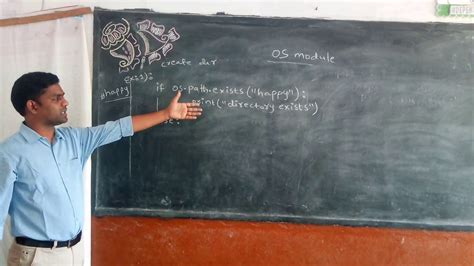 OS module
create dir
#happy
if os.path.exists("happy"):
print("directory exists")